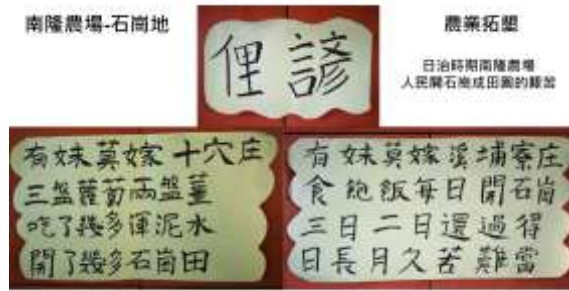 南隆農場-石崗地
農業拓墾
日治時期南隆農場
人民開石崗成田園的艱苦
俚諺
有妹莫嫁十穴庄
三盤蘿蔔兩盤薑
吃了幾多渾泥水
開了幾多石崗田
有妹莫嫁溪埔寮庄
食飽飯每日開石崗
三日二日還過得
日長月久苦難當